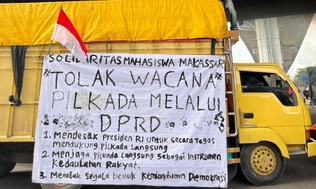 SOLIDARITAS MAHASISWA MAKASSAR
"TOLAK WACANA"
PILKADA MELALUI
DPRD
1. Mendesak Presiden RI untuk secara tegas
mendukung Pilkada Langsung
2. Menjaga pilkada langsung sebagai Instrumen
Kedaulatan Rakyat.
3. Menolak segala bentuk Kemunduran Demokrasi